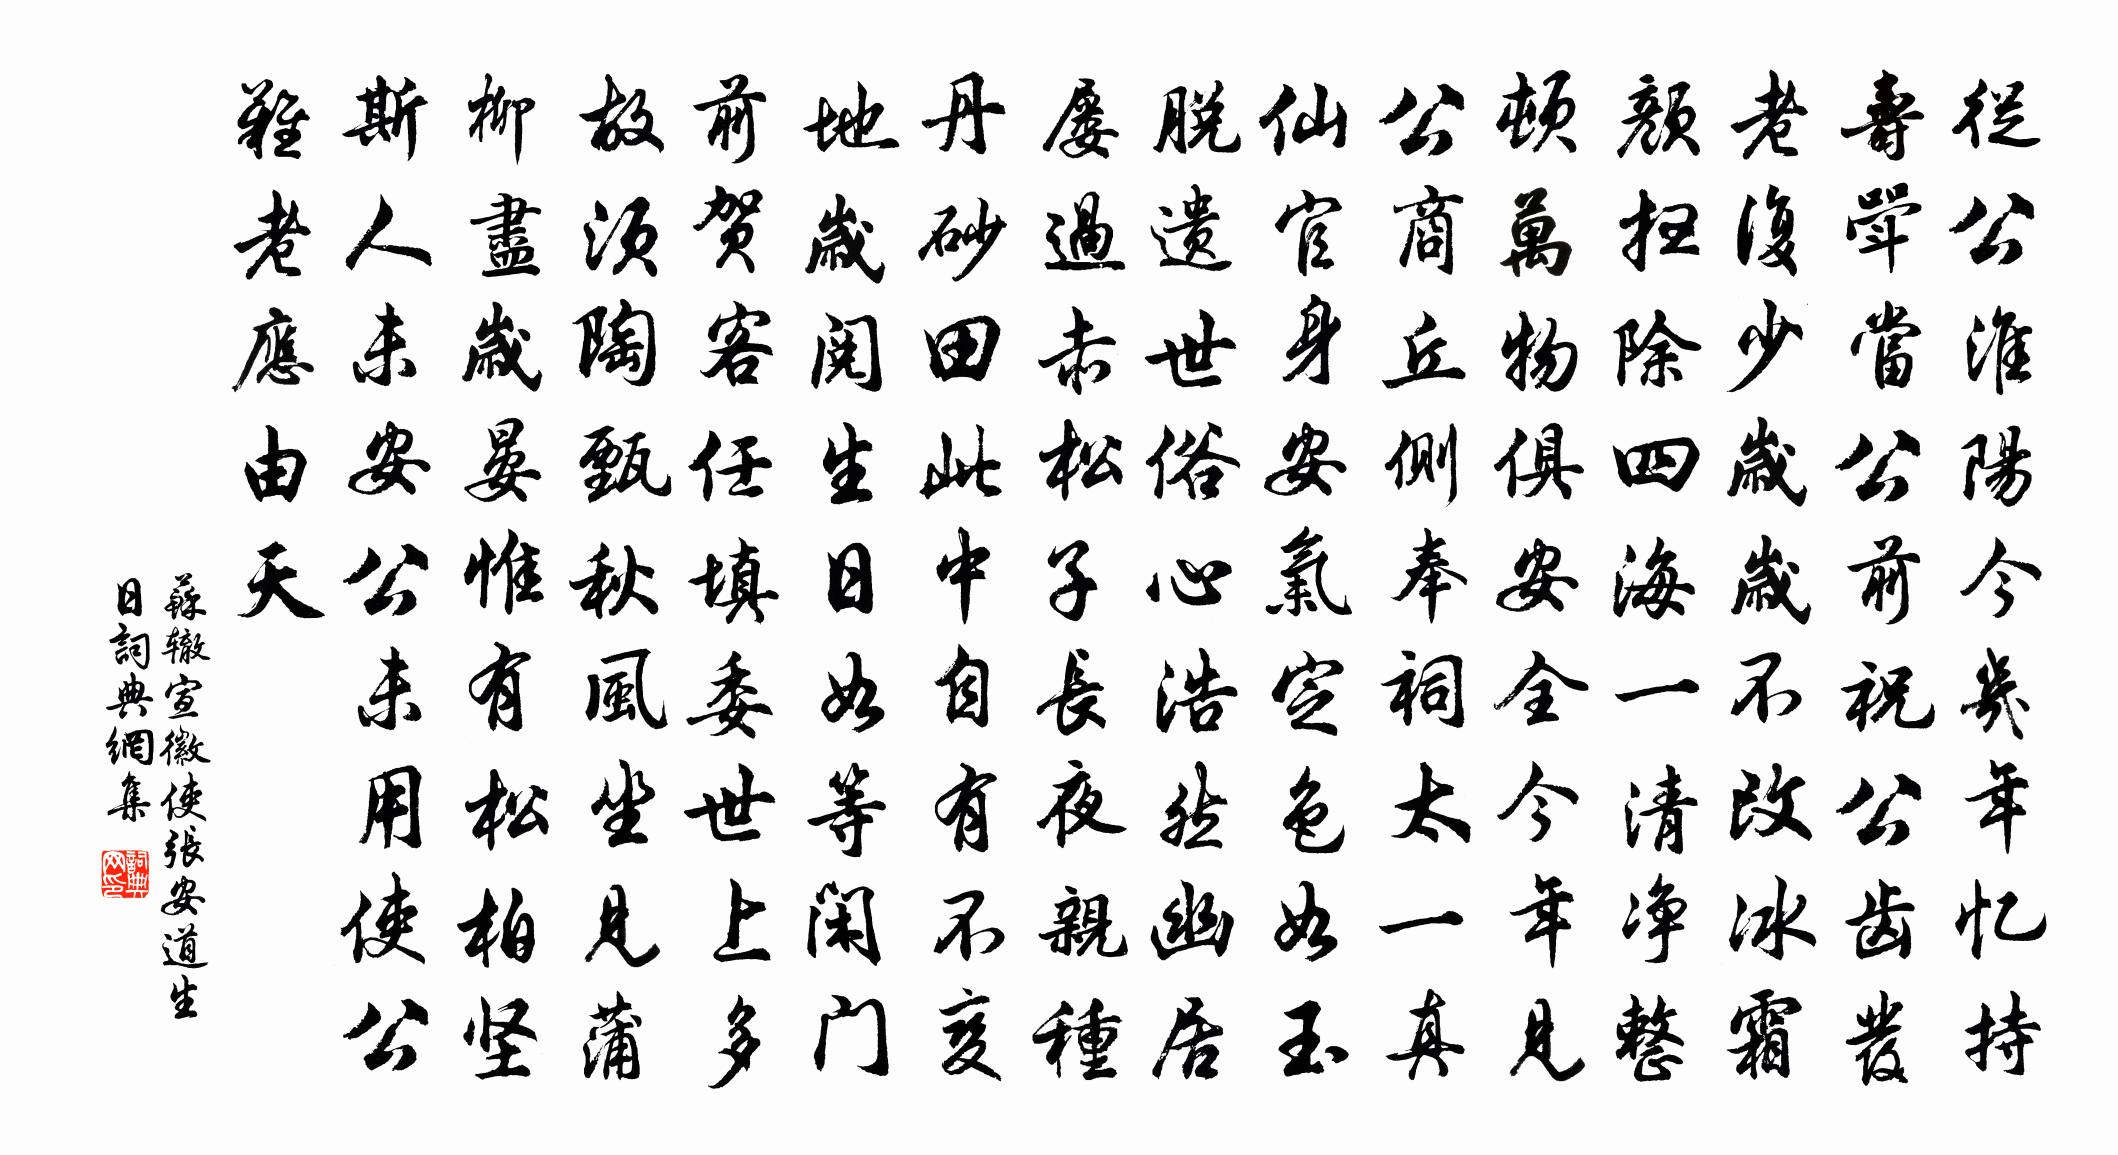 従公淮陽今幾年忆持
壽斝當公前祝公齿發
老復少歲歲不改冰霜
顔扫除四海一清净整
頓萬物俱安全今年見
公商丘側奉祠太一真
仙官身安氣定色如玉
脱遗世俗心浩然幽居
屡過赤松子長夜親種
丹砂田此中自有不変
地歲閲生日如等闲门
前贺客任填委世上多
故须陶甄秋風坐見蒲
柳盡歲晏惟有松柏坚
斯人未安公未用使公
難老應由天
蘇辙宣徽使張安道生
日詞典網集
詞典网印